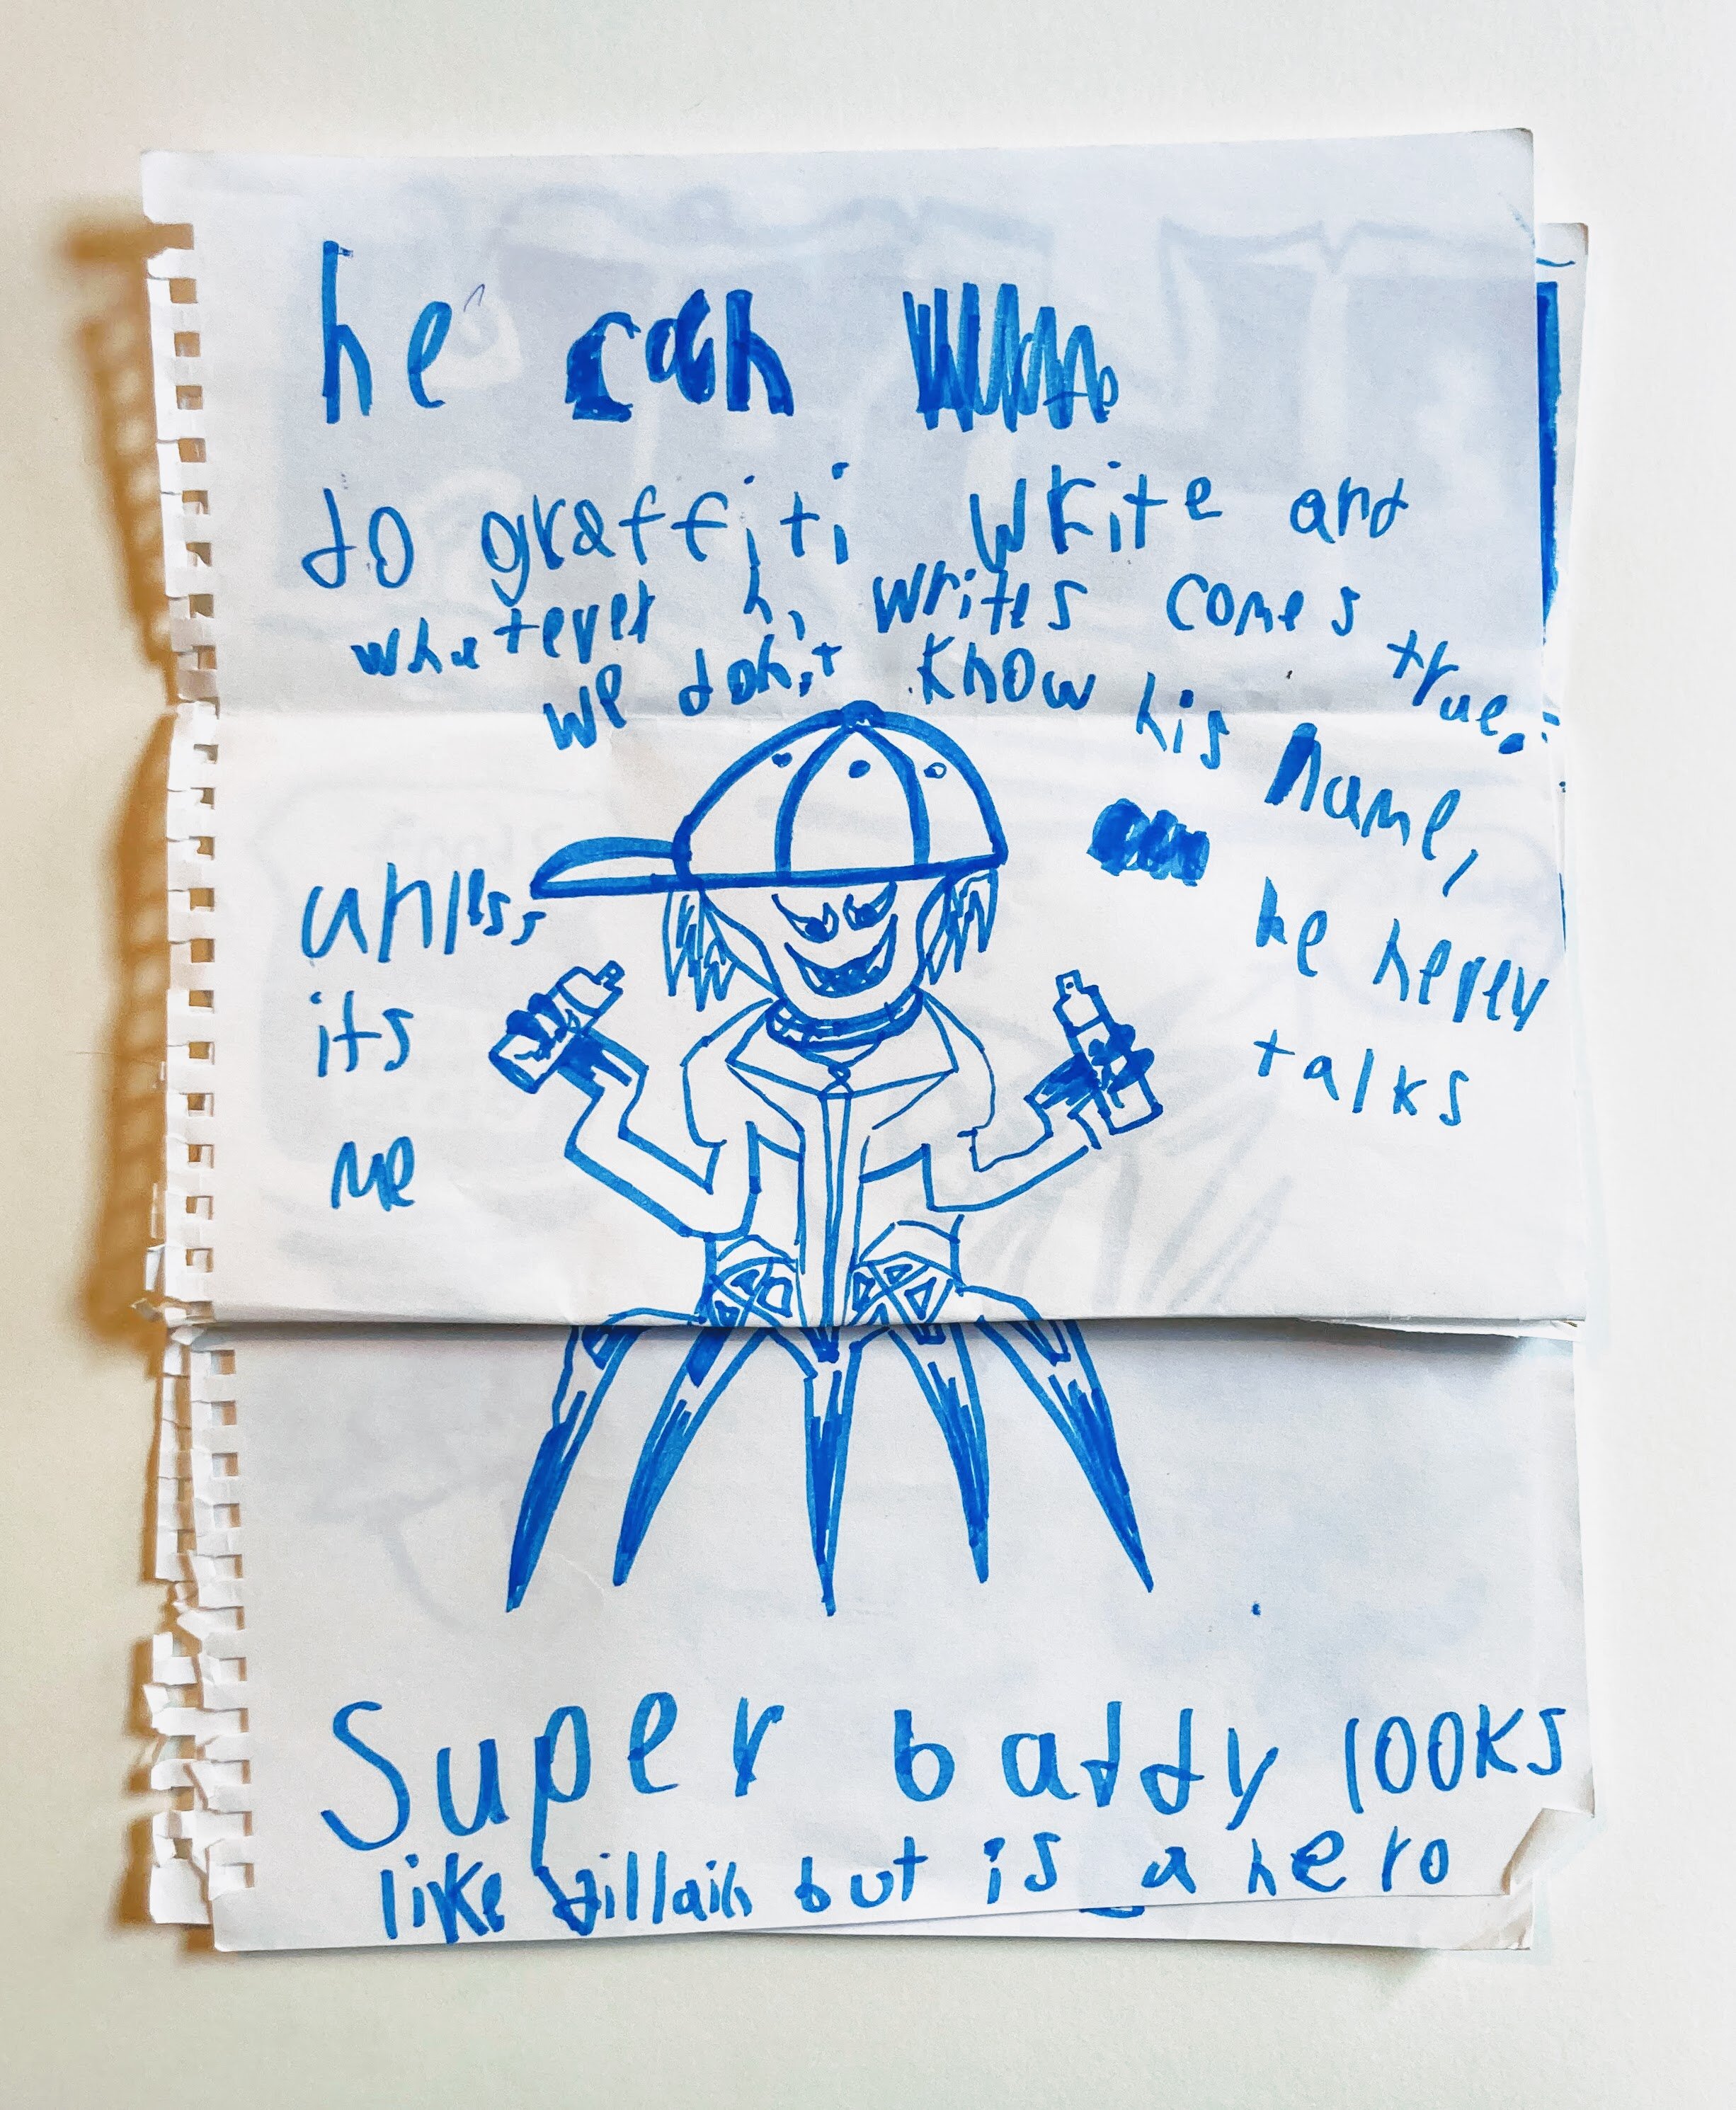 he can
do graffiti write and
whatever he writes comes true.
we don't know his name,
he never
talks
unless
its
me
Super baddy looks
like villain but is a hero